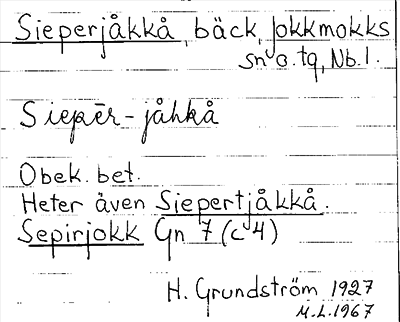 Sieperjåkkå, bäck, Jokkmokks
sn o. tg, Nb.l.
Siepēr-jåhkå
Obek. bet.
Heter även Siepertjåkkå.
Sepirjokk Gn 7 (c4)
H. Grundström 1927
M.L. 1967